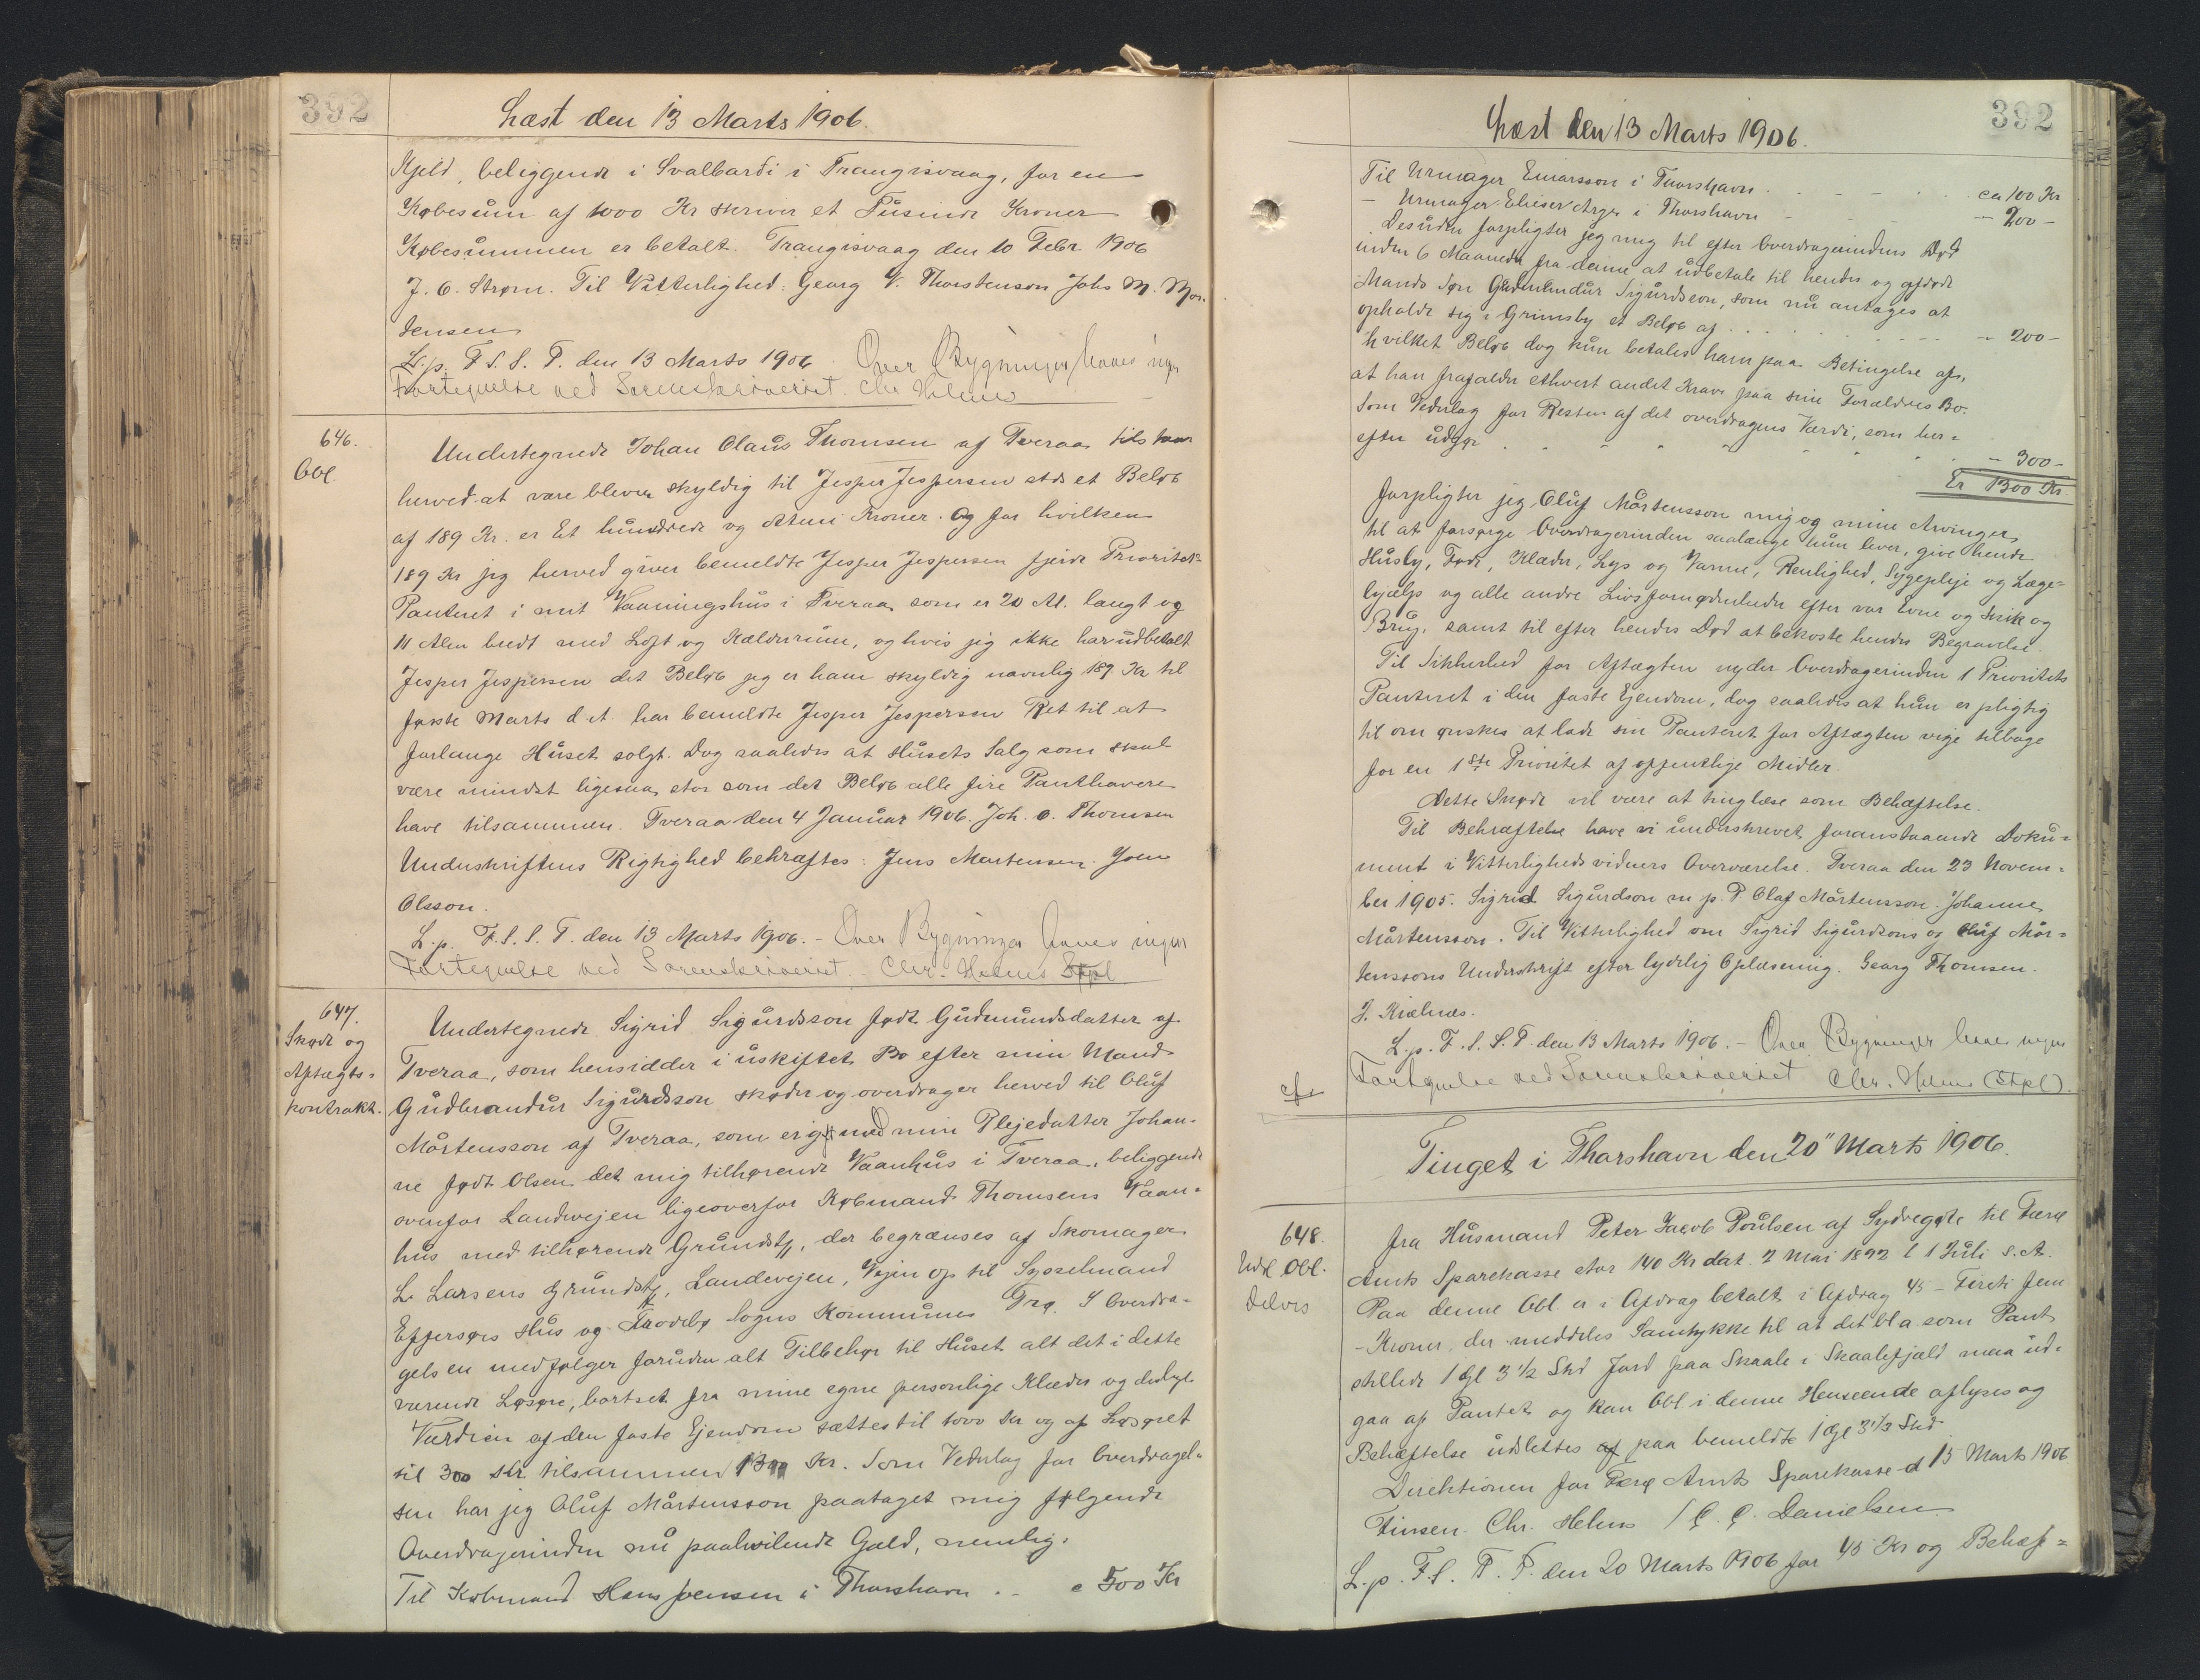 392
Læst den 13 Marts 1906.
Kjeld, beliggende i Svalbardi i Trangisvaag, for en
Købesum af 1000 Kr skriver et Tusinde Kroner
Købesummen er betalt. Trangisvaag den 10 Febr 1906
J. C. Strøm. Til Vitterlighed: Georg V. Thorstenson Johs M. Mor-
tensen
L.p. F. S. S. T. den 13 Marts 1906 Over Bygninger haves ingen
Fortegnelse ved Sorenskriveriet. Chr Helms
646.
Obl.
Undertegnede Johan Olaus Thomsen af Tveraa tilstaar
herved at være bleven skyldig til Jesper Jespersen stds et Beløb
af 189 Kr. er Et hundrede og Atuni Kroner. Og for hvilken
189 Kr jeg herved giver bemeldte Jesper Jespersen fjerde Prioritets
Panteret i mit Vaaningshus i Tveraa som er 20 Al. langt og
11 Alen bredt med Loft og Kælderrum, og hvis jeg ikke har udbetalt
Jesper Jespersen det Beløb jeg er ham skyldig navnlig 189 Kr til
første Marts d. A. har bemeldte Jesper Jespersen Ret til at
forlange Huset solgt. Dog saaledes at Husets Salg som skal
være mindst ligesaa stor som det Beløb alle fire Panthavere
have tilsammen. Tveraa den 4 Januar 1906. Joh. O. Thomsen
Underskriftens Rigtighed bekræftes: Jens Martensen. Joen
Olsson.
L.p. F. S. S. T. den 13 Marts 1906. - Over Bygninger haves ingen
Fortegnelse ved Sorenskriveriet. Chr. Helms Stpl
647.
Skøde og
Aftægts=
kontrakt.
Undertegnede Sigrid Sigurdsson født Gudmundsdatter af
Tveraa, som hensidder i uskiftet Bo efter min Mand
Gudbrandur Sigurdsson skøder og overdrager herved til Oluf
Mårtensson af Tveraa, som er gift med min Plejedatter Johan-
ne født Olsen det mig tilhørende Vaanhus i Tveraa, beliggende
ovenfor Landevejen ligeoverfor Købmand Thomsens Vaan=
hus med tilhørende Grundstk, der begrænses af Skomager
L. Larsens Grundstk, Landevejen, Vejen op til Sysselmand
Effersøes Hus og Frodebø Sogns Kommunes Trø. I Overdra=
gelsen medfølger foruden alt Tilbehør til Huset alt det i dette
værende Løsøre, bortset fra mine egne personlige Klæder og deslige
Værdien af den faste Ejendom sættes til 1000 Kr og af Løsøret
til 300 Kr. tilsammen 1300 Kr. Som Vederlag for Overdragel=
sen har jeg Oluf Mårtensson paataget mig følgende
Overdragerinden nu paahvilende Gæld, nemlig.
Til Købmand Hans Jensen i Thorshavn . - c 500 Kr
392
Læst den 13 Marts 1906.
Til Urmager Einarsson i Thorshavn . - - - ca 100 Kr
- Urmager Elieser Arge i Thorshavn - - - 200 -
Desuden forpligter jeg mig til efter Overdragerindens Død
inden 6 Maaneder fra denne at udbetale til hendes og afdøde
Mands Søn Gudmundur Sigurdsson, som nu antages at
opholde sig i Grimsby et Beløb af . . . . . - 200 -
hvilket Beløb dog kun betales ham paa Betingelse af,
at han frafalder ethvert andet Krav paa sine Forældres Bo.
Som Vederlag for Resten af det overdragnes Værdi, som her=
efter udgør . . . . . . - 300 -
Er 1300 Kr
forpligter jeg Oluf Mårtensson mig og mine Arvinger
til at forsørge Overdragerinden saalænge hun lever, give hende
Husly, Føde, Klæder, Lys og Varme, Renlighed, Sygepleje og Læge=
hjælp og alle andre Livsfornødenheder efter vor Evne og Skik og
Brug, samt til efter hendes Død at bekoste hendes Begravelse.
Til Sikkerhed for Aftægten nyder Overdragerinden 1 Prioritets
Panteret i den faste Ejendom, dog saaledes at hun er pligtig
til om ønskes at lade sin Panteret for Aftægten vige tilbage
for en 1ste Prioritet af offentlige Midler.
Dette Skøde vil være at tinglæse som Behæftelse.
Til Bekræftelse have vi underskrevet foranstaaende Doku=
ment i Vitterlighedsvidners Overværelse. Tveraa den 23 Novem=
ber 1905. Sigrid Sigurdson m. p. P. Olaf Mårtensson. Johanne
Mårtensson. Til Vitterlighed om Sigrid Sigurdsons og Oluf Mår=
tenssons Underskrift efter lydelig Oplæsning. Georg Thomsen.
J. Kjælnæs.
L.p. F. S. S. T. den 13 Marts 1906. - Over Bygninger haves ingen
Fortegnelse ved Sorenskriveriet Chr. Helms (Stpl).
cf.
Tinget i Thorshavn den 20" Marts 1906.
648.
Udsl. Obl.
Delvis
fra Husmand Peter Jacob Poulsen af Sydregøte til Færø
Amts Sparekasse stor 140 Kr dat. 2 Mai 1892 l 1 Juli s. A.
Paa denne Obl. er i Afdrag betalt i Afdrag 45 - Fireti fem
- Kroner, der meddeles Samtykke til at det bl a som Pant
stillede 1 Gl 3 1/2 Skd Jord paa Skaale i Skaalefjæld maa ud=
gaa af Pantet og kan Obl. i denne Henseende aflyses og
Behæftelse udslettes af paa bemeldte 1 Gl 3 1/2 Skd
Direktionen for Færø Amts Sparekasse d 15 Marts 1906
Finsen. Chr. Helms / C. C. Danielsen
L. p. F. S. T. T. den 20 Marts 1906 for 45 Kr og Behæf=